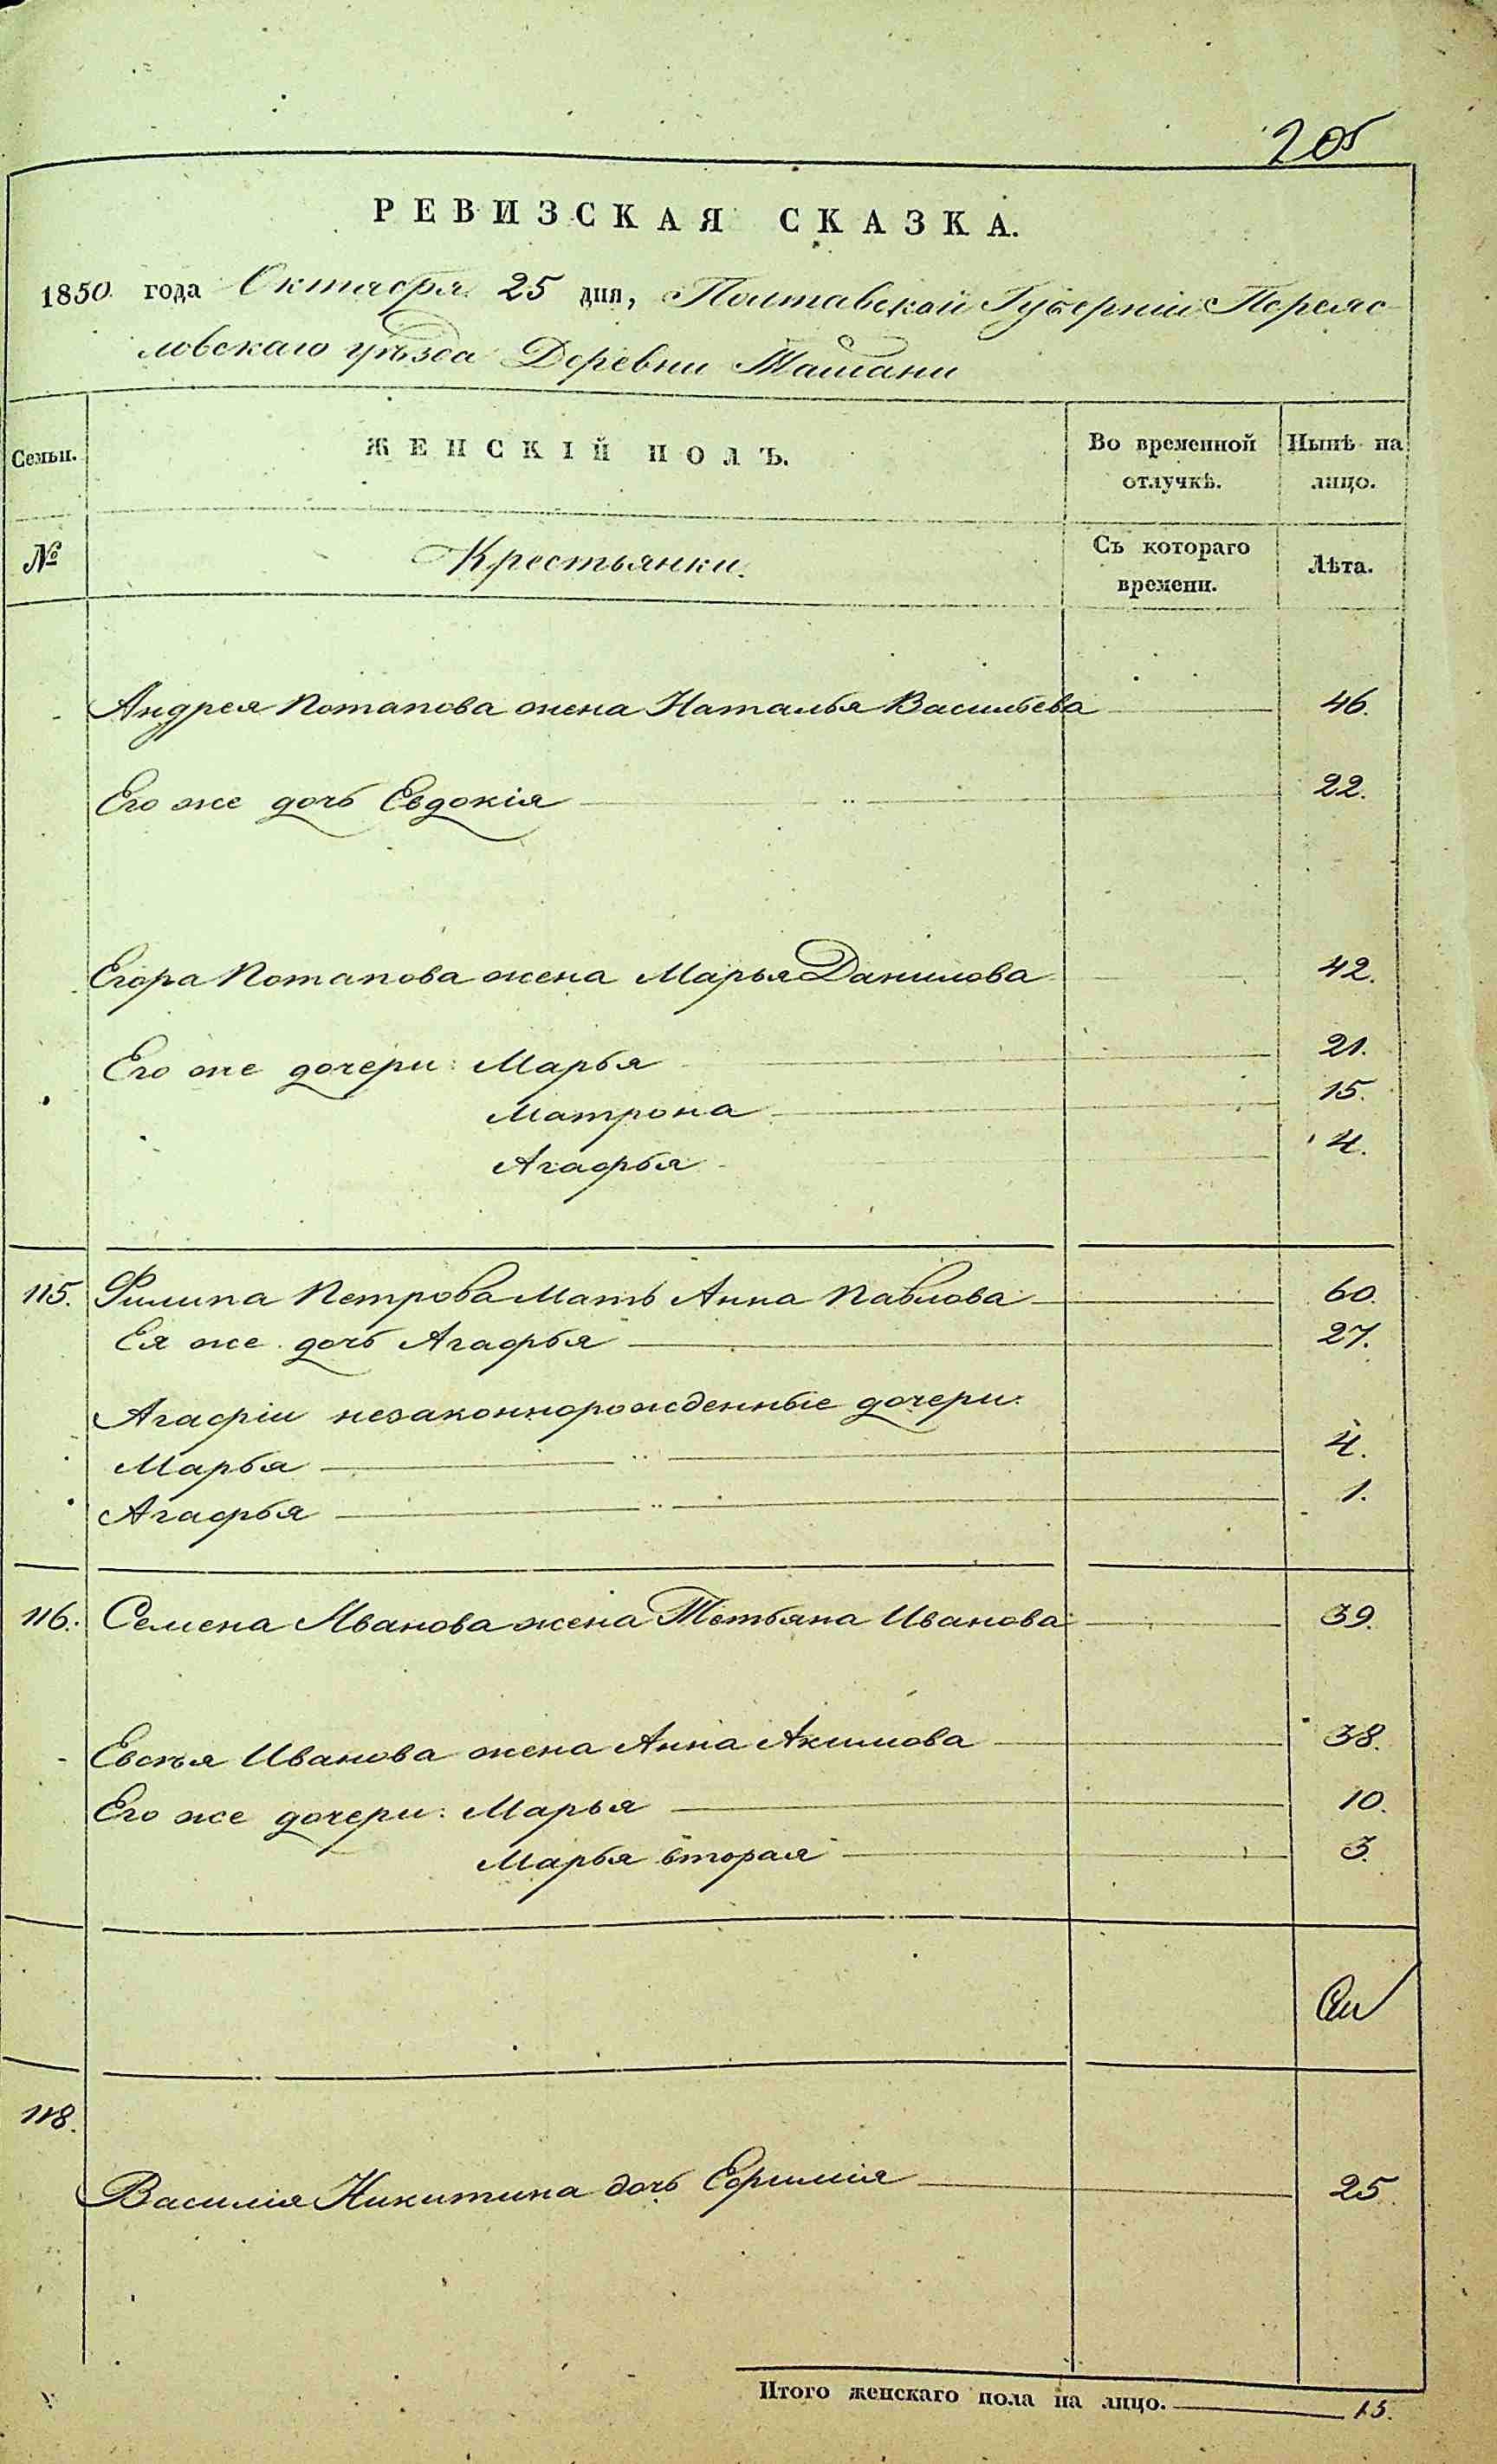 205
РЕВИЗСКАЯ СКАЗКА.
1850 года Октября 25 дня, Полтавской Губерніи Переяс-
ловскаго уѣзда Деревни Ташани
Семьи.
ЖЕНСКІЙ ПОЛЪ.
Во временной отлучкѣ.
Нынѣ на лицо.
№
Крестьянки.
Съ котораго времени.
Лѣта.
Андрея Потапова жена Наталья Васильева 46.
Его же дочь Евдокія 22.
Егора Потапова жена Марья Данилова 42.
Его же дочери: Марья 21.
Матрона 15.
Агафья 4.
115. Филипа Петрова Мать Анна Павлова 60.
Ея же дочь Агафья 27.
Агафіи незаконнорожденные дочери:
Марья 4.
Агафья 1.
116. Семена Иванова жена Тетьяна Иванова 39.
Евсѣя Иванова жена Анна Акимова 38.
Его же дочери: Марья 10.
Марья вторая 3.
118.
Василія Никитина дочь Ефимія 25.
Итого женскаго пола на лицо. 15.